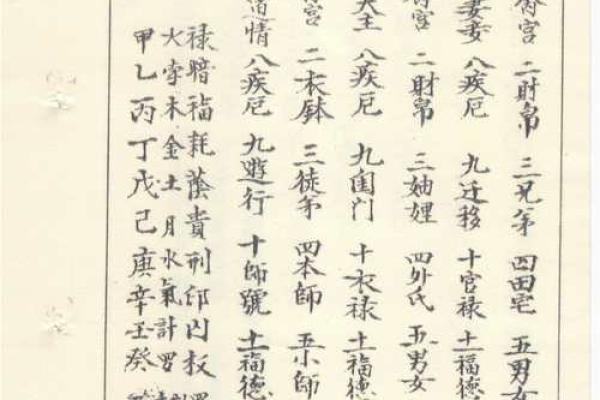 宫 二財帛 三兄弟 四田宅 五男女
妻妾 八疾厄 九迁移 十官禄 十一福德
宫 二財帛 三妯娌 四外氏 五男女
夫主 八疾厄 九闺门 十衣禄 十一福德
宫 二衣鉢 三徒弟 四本師 五小師
道情 八疾厄 九遊行 十師號 十一福德
禄暗福耗蔭貴刑印囚权
火孛木金土月水氣計罗
甲乙丙丁戊己庚辛壬癸